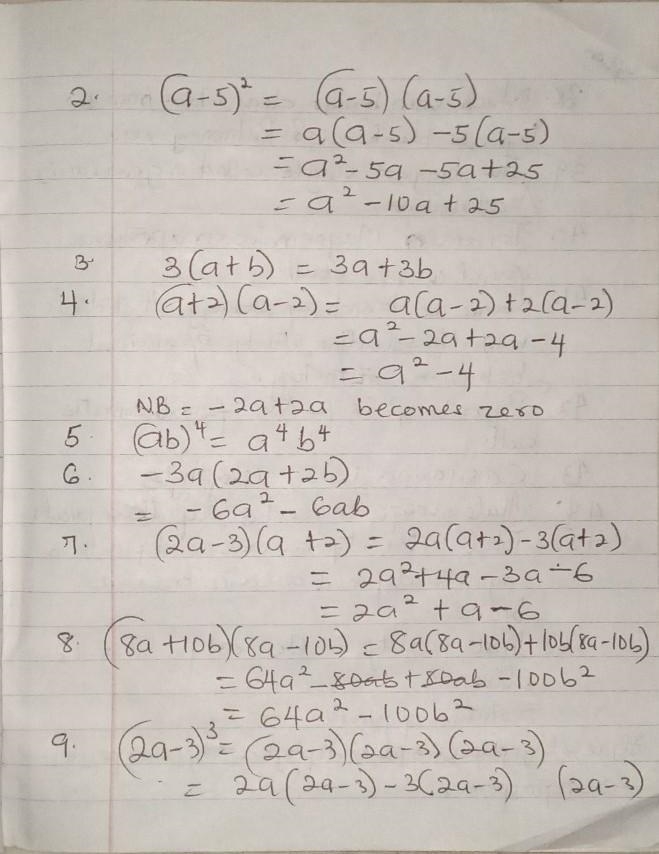 2. (a-5)² = (a-5)(a-5)
= a(a-5) -5(a-5)
= a² - 5a - 5a + 25
= a² - 10a + 25
3. 3(a+b) = 3a+3b
4. (a+2)(a-2) = a(a-2)+2(a-2)
= a² - 2a + 2a - 4
= a² - 4
N.B = -2a+2a becomes zero
5. (ab)⁴ = a⁴b⁴
6. -3a(2a+2b)
= -6a² - 6ab
7. (2a-3)(a+2) = 2a(a+2)-3(a+2)
= 2a²+4a-3a-6
= 2a² + a - 6
8. (8a+10b)(8a-10b) = 8a(8a-10b)+10b(8a-10b)
= 64a² - 80ab + 80ab - 100b²
= 64a² - 100b²
9. (2a-3)³ = (2a-3)(2a-3)(2a-3)
= 2a(2a-3)-3(2a-3) (2a-3)